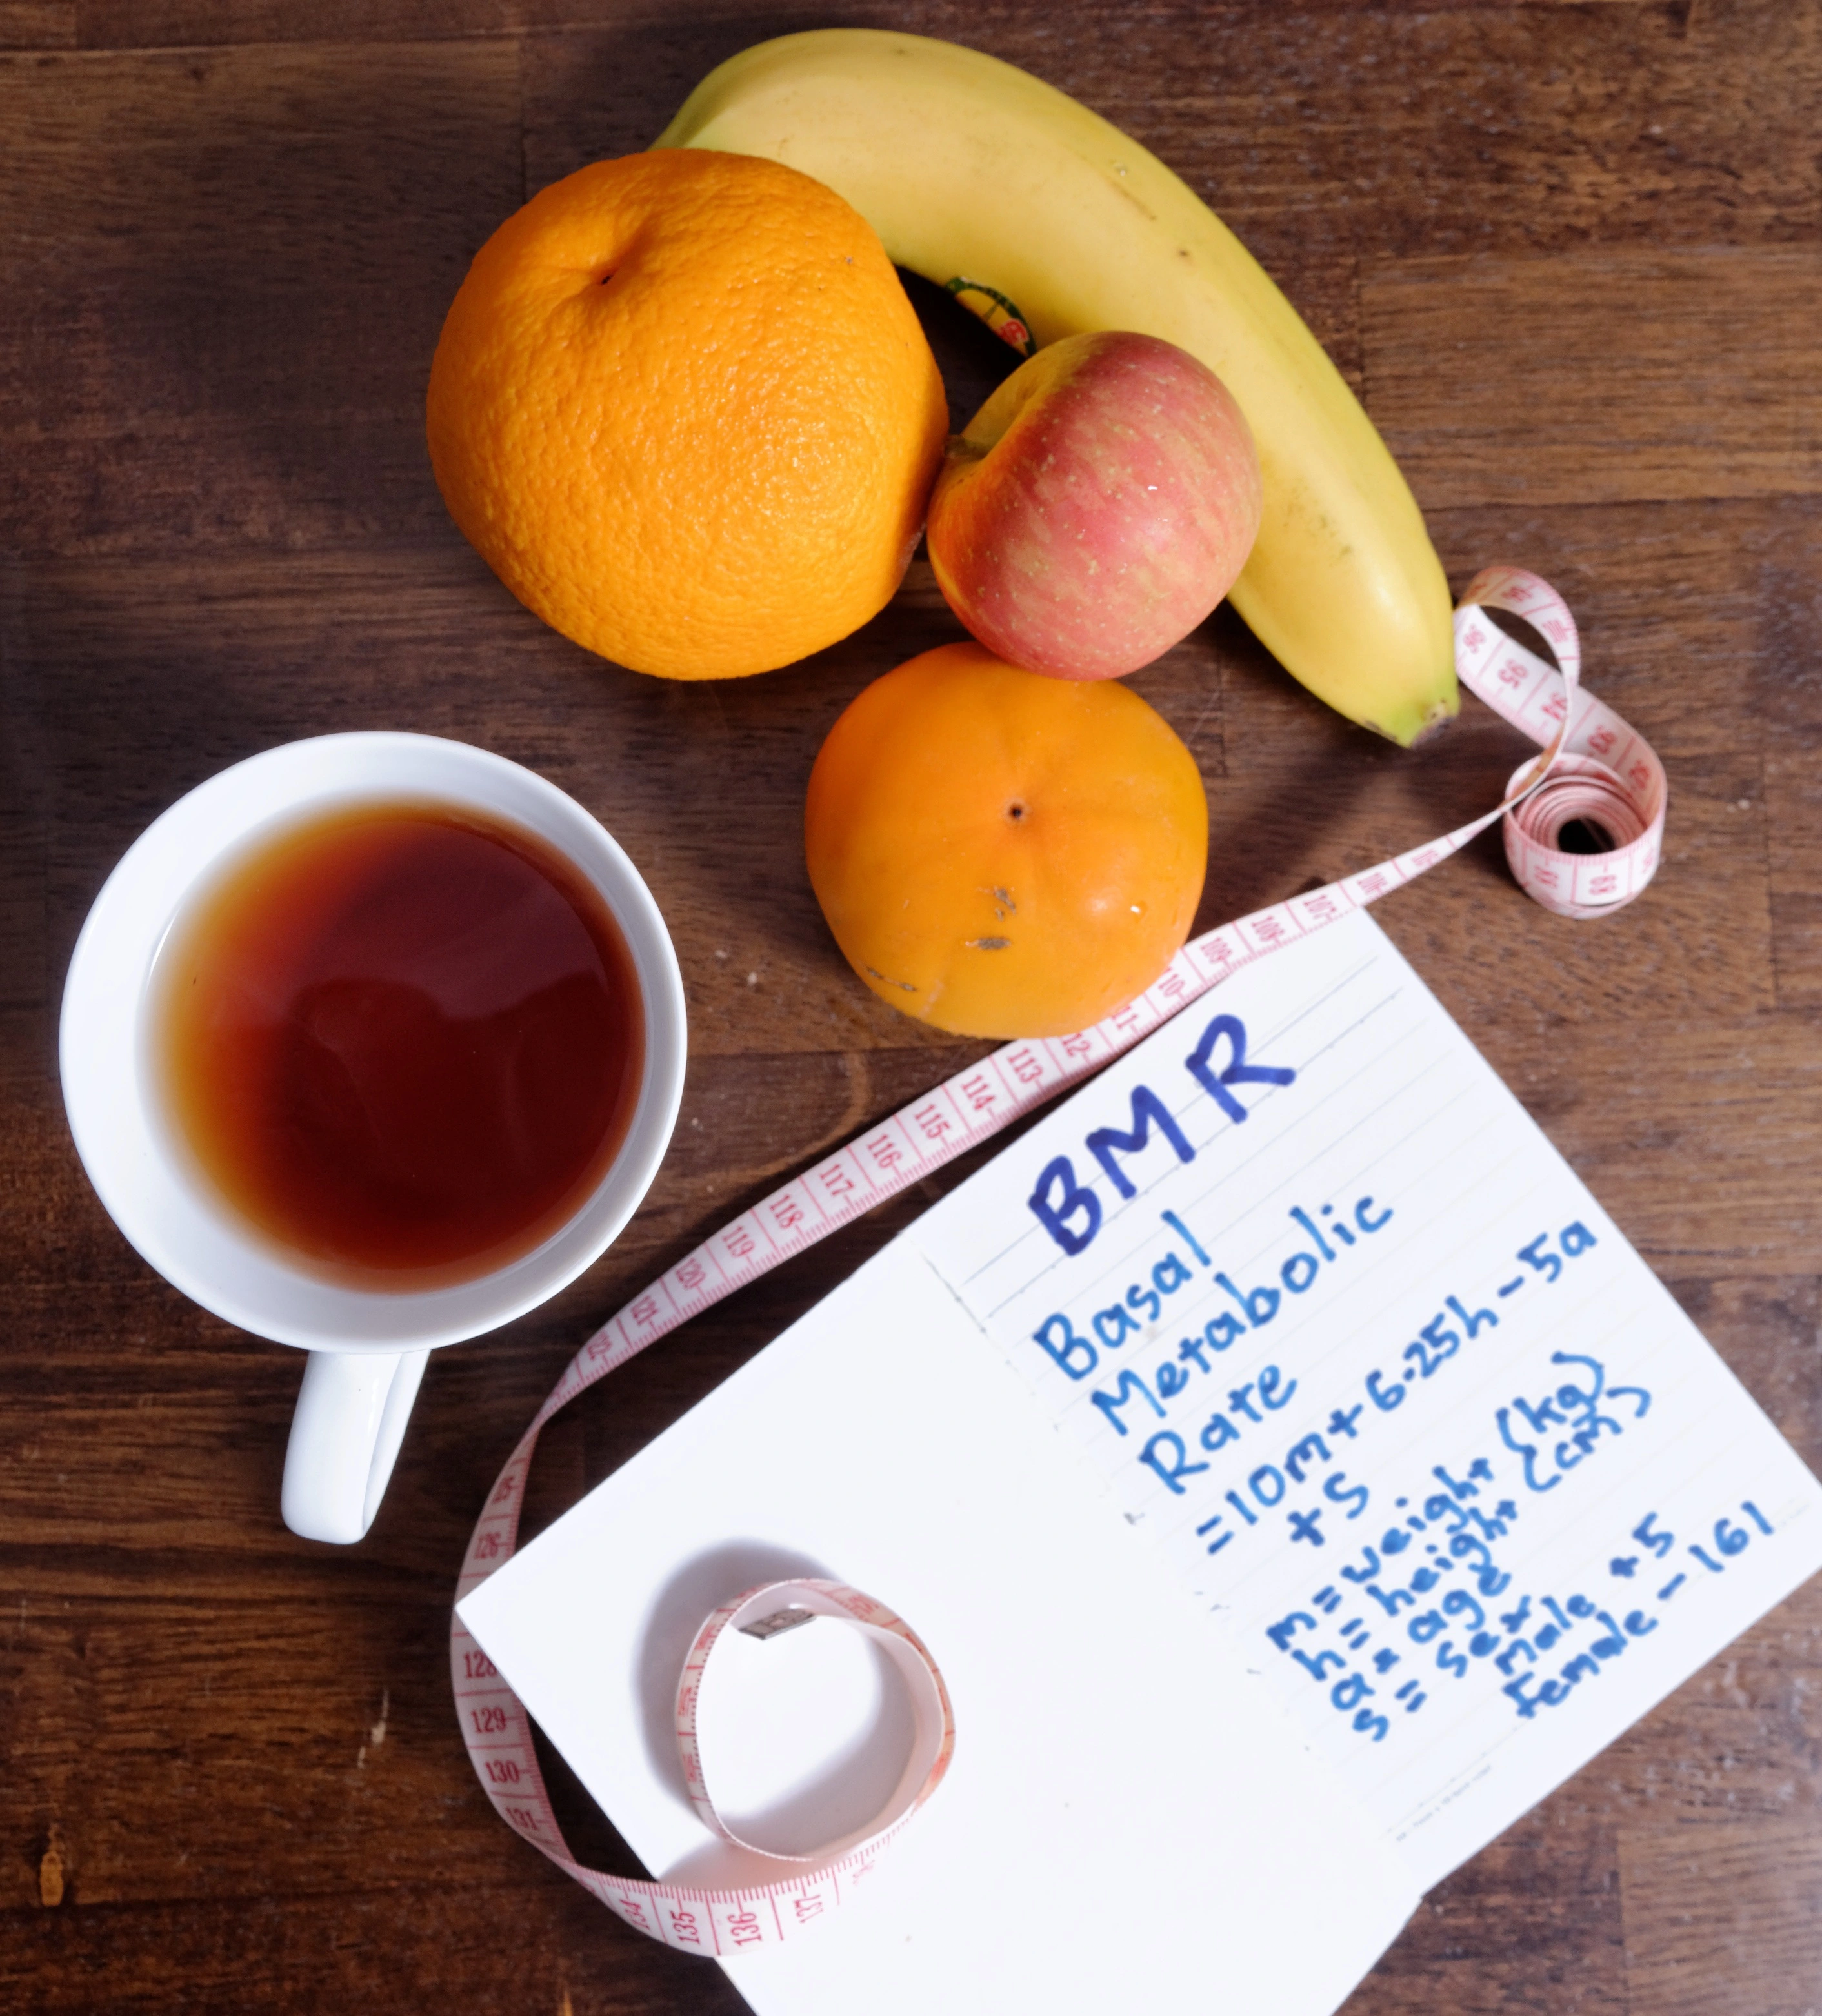 BMR
Basal
Metabolic
Rate
=10m+6.25h-5a
+s
m=weight (kg)
h=height (cm)
a= age
s= sex
male +5
Female-161
96
95
94
93
92
107
108
109
110
111
112
113
114
115
116
117
118
119
120
121
122
126
128
129
130
131
134
135
136
137